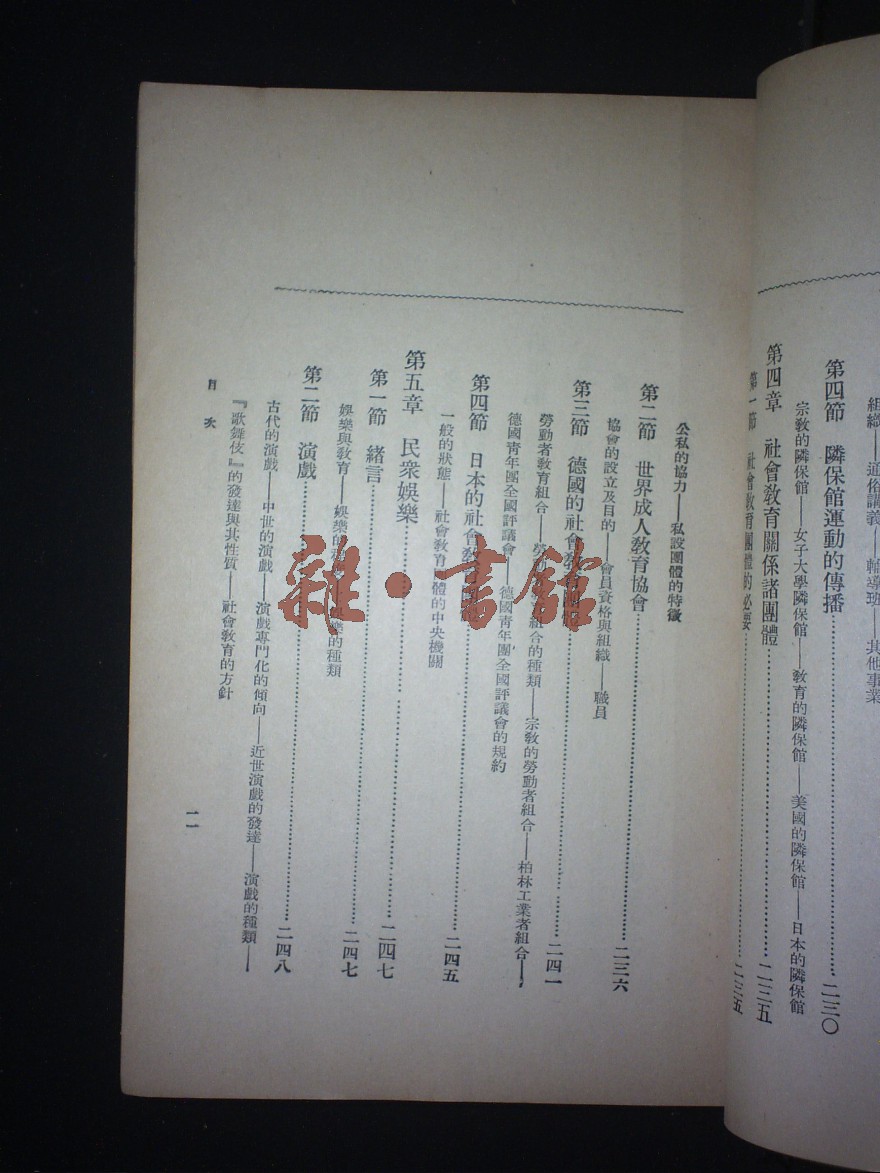 組織——通俗講義——輔導班——其他事業
第四節　隣保館運動的傳播……二三〇
宗教的隣保館——女子大學隣保館——教育的隣保館——美國的隣保館——日本的隣保館
第四章　社會教育關係諸團體……二三五
第一節　社會教育團體的必要……二三五
公私的協力——私設團體的特徵
第二節　世界成人教育協會……二三六
協會的設立及目的——會員資格與組織——職員
第三節　德國的社會教育團體……二四一
勞動者教育組合——勞動組合的種類——宗教的勞動者組合——柏林工業者組合——
德國青年團全國評議會——德國青年團全國評議會的規約
第四節　日本的社會教育……二四五
一般的狀態——社會教育團體的中央機關
第五章　民衆娛樂……二四七
第一節　緒言……二四七
娛樂與教育——娛樂的——娛樂的種類
第二節　演戲……二四八
古代的演戲——中世的演戲——演戲專門化的傾向——近世演戲的發達——演戲的種類——
『歌舞伎』的發達與其性質——社會教育的方針
目次
一一
雜·書館